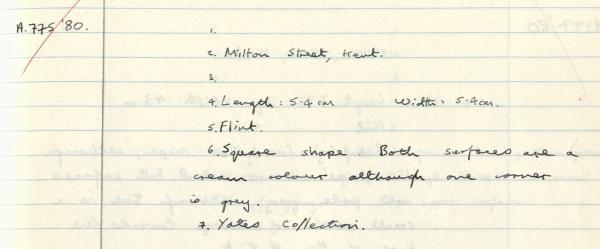 A.775 '80.
1.
2. Milton Street, Kent.
3.
4. Length: 5.4 cm Width: 5.4cm.
5. Flint.
6. Square shape. Both surfaces are a
cream colour although one corner
is grey.
7. Yates Collection.